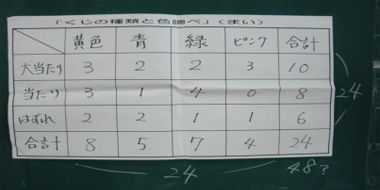 「くじの種類と色調べ」(まい)
黄色 青 緑 ピンク 合計
大当たり 3 2 2 3 10
当たり 3 1 4 0 8
はずれ 2 2 1 1 6
合計 8 5 7 4 24
24
24
48?